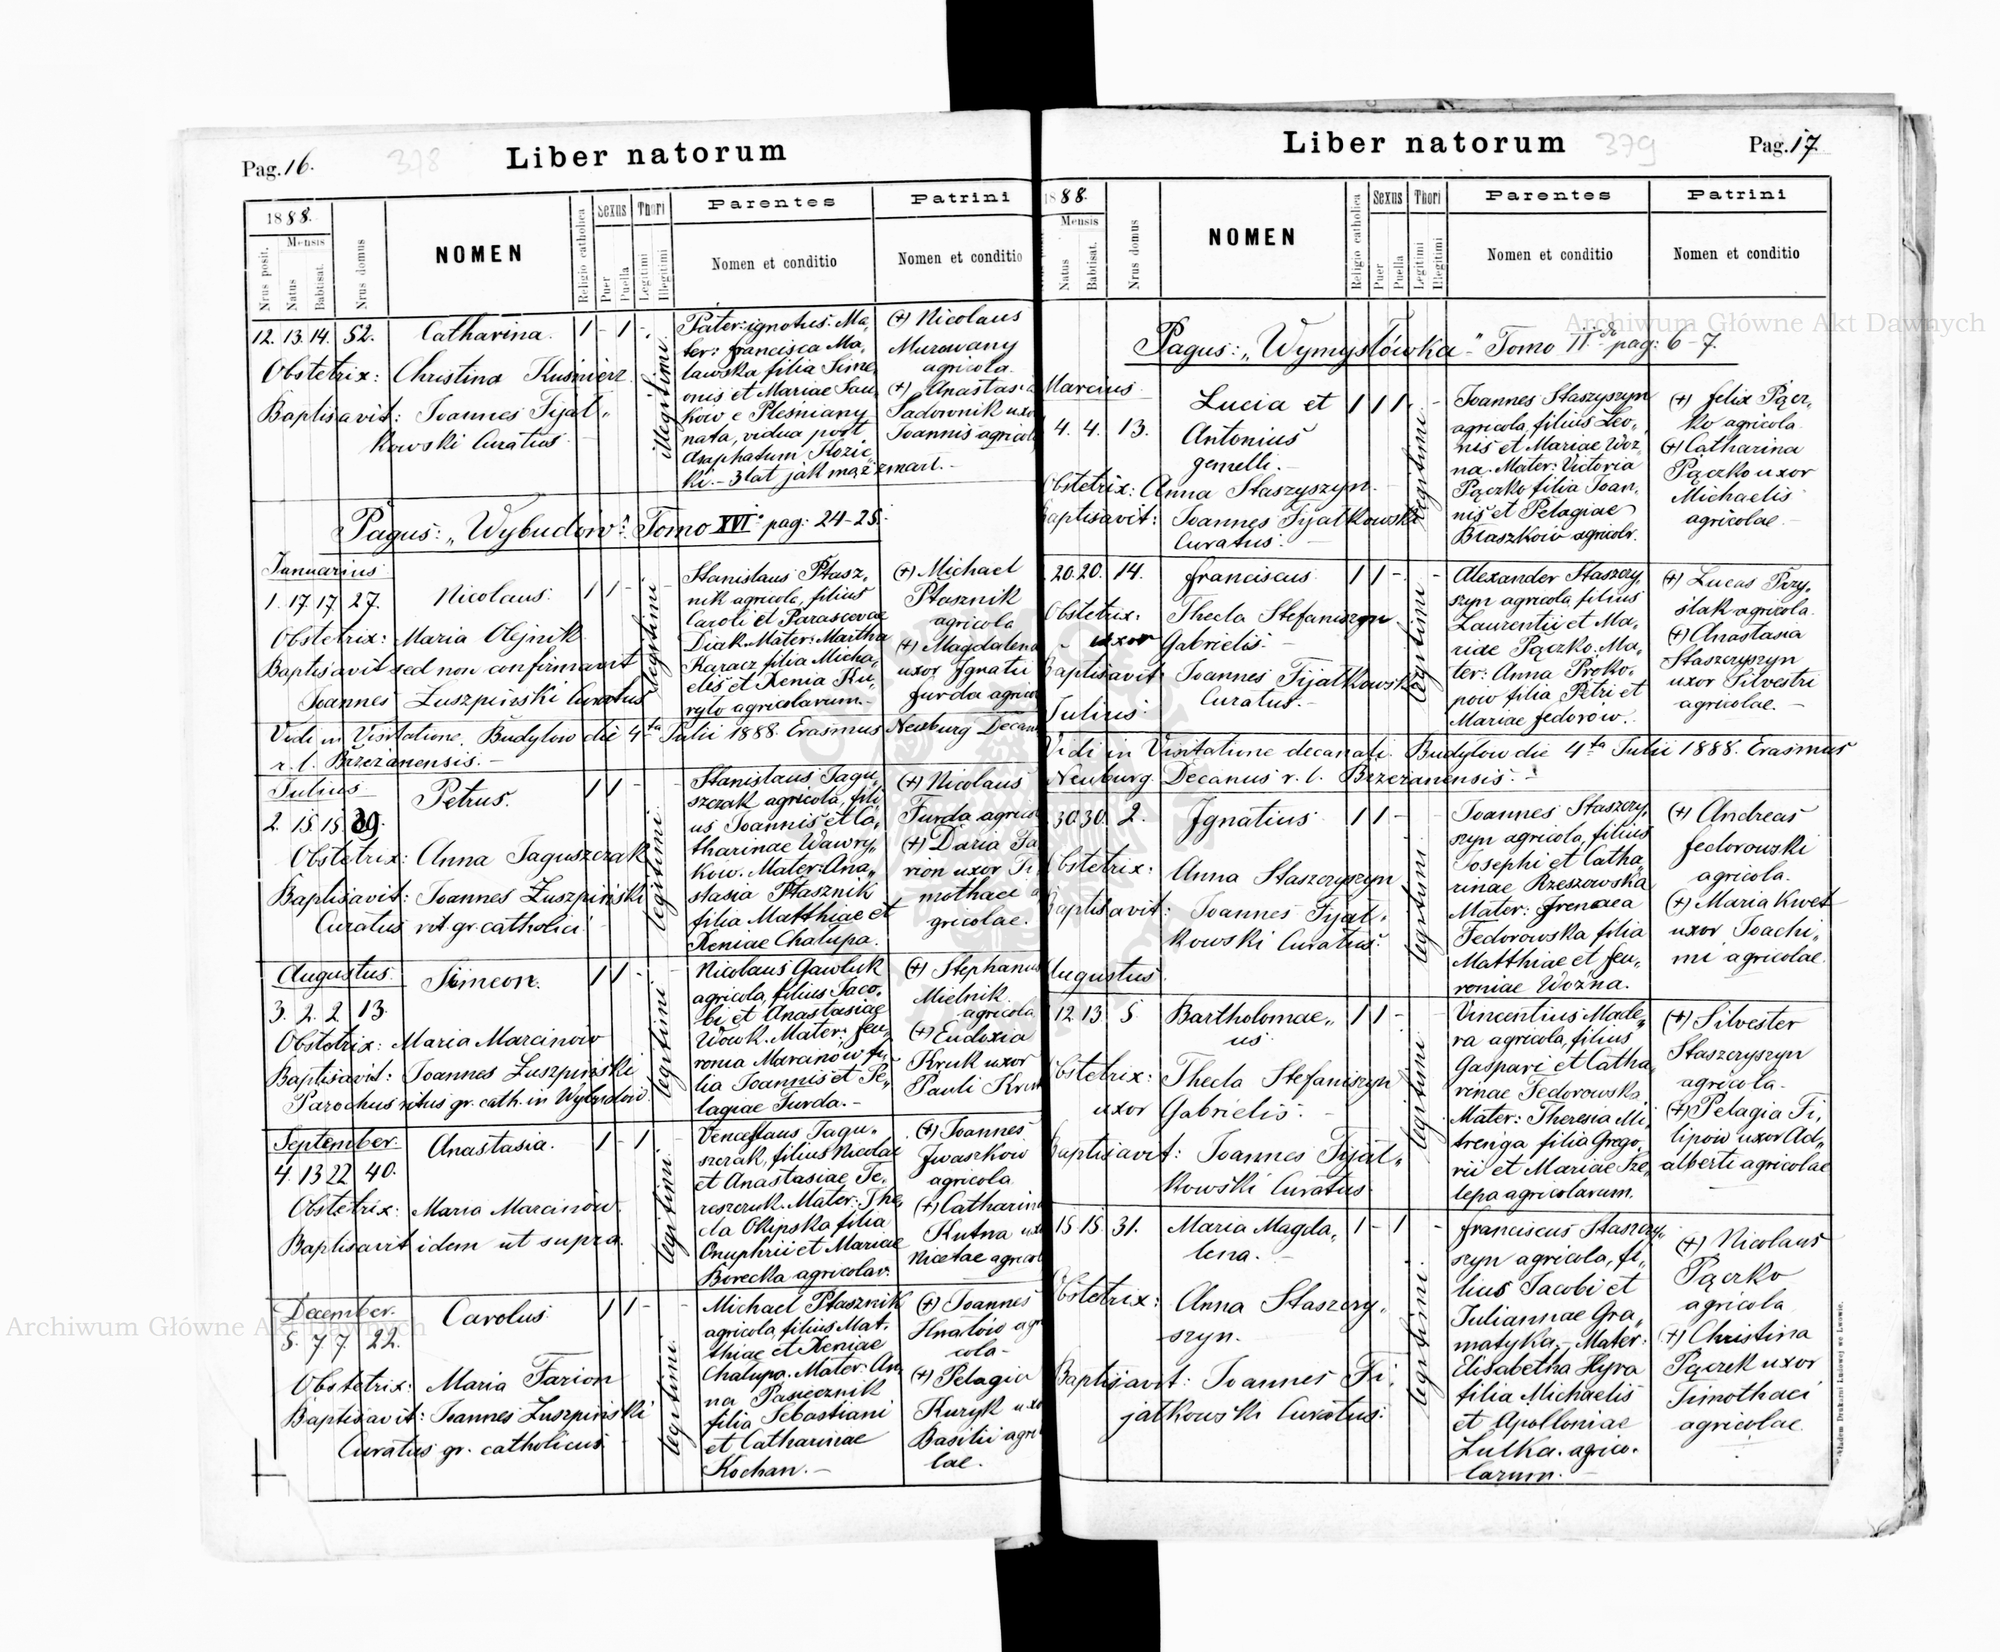 Pag. 16.
378
Liber natorum
1888.
Nrus posit.
Mensis
Natus
Babtisat.
Nrus domus
NOMEN
Religio catholica
Sexus
Puer
Puella
Thori
Legitimi
Illegitimi
Parentes
Nomen et conditio
Patrini
Nomen et conditio
12. 13. 14. 52. Catharina. 1 - 1 -
Obstetrix: Christina Kuśnierz
Baptisavit: Joannes Fijał-
kowski Curatus.
illegitimi
Pater: ignotus. Ma-
ter: Francisca Ma-
lawska filia Sime-
onis et Mariae Sau-
kow e Pleśniany
nata, vidua post
Asaphatum Kozic-
ki. - 3 lat jak mąż zmarł. -
(+) Nicolaus
Murowany
agricola.
(+) Anastasia
Sadownik uxor
Joannis agricola
Pagus: „Wybudów". Tomo XVI. pag: 24-25.
Januarius
1. 17. 17. 27. Nicolaus. 1 1 - -
Obstetrix: Maria Olejnik
Baptisavit sed non confirmavit
Joannes Łuszpiński Curatus
legitimi
Stanislaus Ptasz-
nik agricola, filius
Caroli et Parascevae
Diak. Mater: Martha
Karacz filia Micha-
elis et Xenia Ku-
ryło agricolarum. -
(+) Michael
Ptasznik
agricola
(+) Magdalena
uxor Ignatii
Furda agricol
Vidi in Visitatione. Budyłow die 4ta Julii 1888. Erasmus Neuburg Decan
r. l. Brzeżanensis. -
Julius
2. 15 15 29. Petrus. 1 1 - -
Obstetrix: Anna Jaguszczak
Baptisavit: Joannes Łuszpiński
Curatus rit. gr. catholici
legitimi
Stanislaus Jagu-
szczak agricola, fili-
us Joannis et Ca-
tharinae Wawry-
kow. Mater: Ana-
stasia Ptasznik
filia Matthiae et
Xeniae Chałupa.
(+) Nicolaus
Furda agricol
(+) Daria Fa-
rion uxor Ti-
mothaei a
gricolae.
Augustus.
3. 2. 2. 13. Simeon. 1 1 - -
Obstetrix: Maria Marcinow
Baptisavit: Joannes Łuszpiński
Parochus ritus gr. cath. in Wybudow.
legitimi
Nicolaus Gawluk
agricola, filius Jaco-
bi et Anastasiae
Wowk. Mater: Feu-
ronia Marcinów fi-
lia Joannis et Pe-
lagiae Furda. -
(+) Stephanus
Mielnik
agricola
(+) Eudoxia
Kruk uxor
Pauli Kruk
September.
4. 13 22 40. Anastasia. 1 - 1 -
Obstetrix: Maria Marcinow.
Baptisavit idem ut supra.
legitimi
Venceslaus Jagu-
szczak, filius Nicolai
et Anastasiae Te-
reszczuk. Mater: The-
cla Okipska filia
Onuphrii et Mariae
Borecka agricolar.
(+) Joannes
Iwaszkow
agricola
(+) Catharina
Kutna uxor
Nicetae agricol
December.
5. 7 7 22. Carolus. 1 1 - -
Obstetrix: Maria Farion
Baptisavit: Joannes Łuszpiński
Curatus gr. catholicus
legitimi
Michael Ptasznik
agricola filius Mat-
thiae et Xeniae
Chałupa. Mater: An-
na Pasiecznik
filia Sebastiani
et Catharinae
Kochan. -
(+) Joannes
Hnatów agri
cola -
(+) Pelagia
Kuryk uxo
Basilii agri
lae.
Liber natorum
379
Pag. 17.
1888.
Mensis
Natus
Babtisat.
Nrus domus
NOMEN
Religio catholica
Sexus
Puer
Puella
Thori
Legitimi
Illegitimi
Parentes
Nomen et conditio
Patrini
Nomen et conditio
Pagus: „Wymysłówka" Tomo IIdo pag: 6-7.
Marcius
4. 4. 13. Lucia et 1 1 1 -
Antonius
gemelli. -
Obstetrix: Anna Staszyszyn.
Baptisavit: Joannes Fijałkowski
Curatus. -
legitimi
Joannes Staszyszyn
agricola, filius Leo-
nis et Mariae Woz-
na. Mater: Victoria
Pączko filia Joan-
nis et Pelagiae
Błaszków agricolr.
(+) Felix Pącz-
ko agricola
(+) Catharina
Pączko uxor
Michaelis
agricolae. -
20. 20. 14. Franciscus. 1 1 - -
Obstetrix: Thecla Stefaniszyn
uxor Gabrielis. -
Baptisavit: Joannes Fijałkowski
Curatus. -
legitimi
Alexander Staszczy-
szyn agricola, filius
Laurentii et Ma-
riae Pączko. Ma-
ter: Anna Proko-
pow filia Petri et
Mariae Fedorow.
(+) Lucas Przy-
ślak agricola.
(+) Anastasia
Staszczyszyn
uxor Silvestri
agricolae. -
Julius
Vidi in Visitatione decanali. Budyłow die 4ta Julii 1888. Erasmus
Neuburg Decanus r. l. Brzeżanensis. -
30. 30. 2. Ignatius 1 1 - -
Obstetrix: Anna Staszczyszyn
Baptisavit: Joannes Fijał-
kowski Curatus.
legitimi
Joannes Staszczy-
szyn agricola, filius
Josephi et Catha-
rinae Rzeszowska
Mater: Frenaea
Fedorowska filia
Matthiae et Feu-
roniae Woźna.
(+) Andreas
Fedorowski
agricola.
(+) Maria Kwet
uxor Joachi-
mi agricolae.
Augustus
12 13 5. Bartholomae- 1 1 - -
us.
Obstetrix: Thecla Stefaniszyn
uxor Gabrielis. -
Baptisavit: Joannes Fijał-
kowski Curatus.
legitimi
Vincentius Made-
ra agricola, filius
Gaspari et Catha-
rinae Fedorowska
Mater: Theresia Mi-
trenga filia Grego-
rii et Mariae Sze-
lepa agricolarum.
(+) Silvester
Staszczyszyn
agricola. -
(+) Pelagia Fi-
lipow uxor Ad-
alberti agricolae
15 15. 31. Maria Magda- 1 - 1 -
lena. -
Obstetrix: Anna Staszczy-
szyn.
Baptisavit: Joannes Fi-
jałkowski Curatus.
legitimi
Franciscus Staszczy-
szyn agricola, fi-
lius Jacobi et
Juliannae Gra-
matyka. - Mater:
Elisabetha Hyra
filia Michaelis
et Apolloniae
Lulka. agrico-
larum. -
(+) Nicolaus
Pączko
agricola
(+) Christina
Pączek uxor
Timothaei
agricolae.
Nakładem Drukarni Ludowej we Lwowie.
Archiwum Główne Akt Dawnych
Archiwum Główne Akt Dawnych